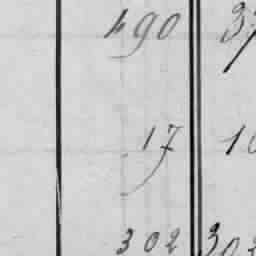 490 37
17 10
302 302